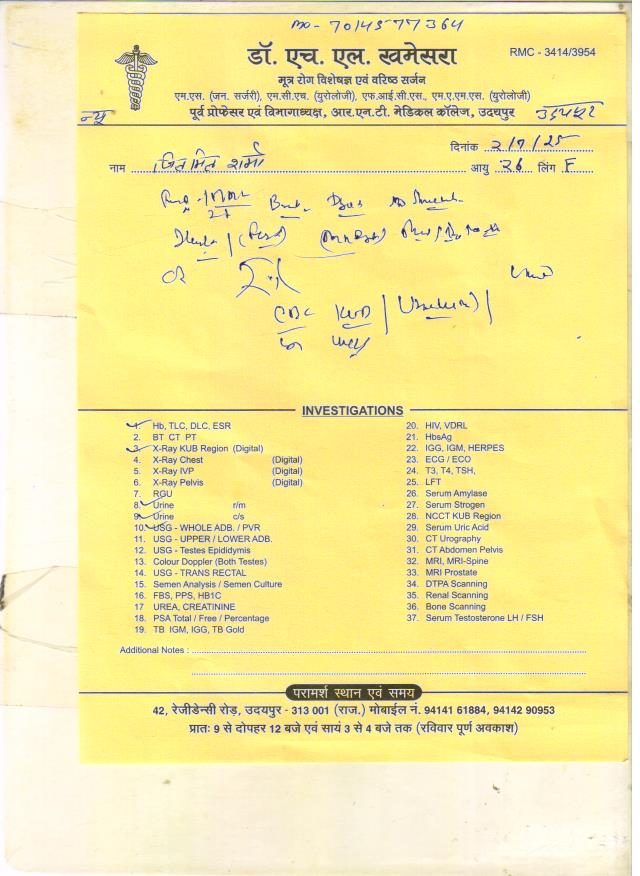 mo- 7014577364
डॉ. एच. एल. खमेसरा
RMC - 3414/3954
मूत्र रोग विशेषज्ञ एवं वरिष्ठ सर्जन
एम.एस. (जन. सर्जरी), एम.सी.एच. (युरोलोजी), एफ.आई.सी.एस., एम.ए.एम.एस. (युरोलोजी)
पूर्व प्रोफेसर एवं विभागाध्यक्ष, आर.एन.टी. मेडिकल कॉलेज, उदयपुर
न्यू उदयपुर
दिनांक 2/7/25
नाम शर्मा आयु 26 लिंग F
CBC KUB
INVESTIGATIONS
1. Hb, TLC, DLC, ESR
2. BT CT PT
3. X-Ray KUB Region (Digital)
4. X-Ray Chest (Digital)
5. X-Ray IVP (Digital)
6. X-Ray Pelvis (Digital)
7. RGU
8. Urine r/m
9. Urine c/s
10. USG - WHOLE ADB. / PVR
11. USG - UPPER / LOWER ADB.
12. USG - Testes Epididymis
13. Colour Doppler (Both Testes)
14. USG - TRANS RECTAL
15. Semen Analysis / Semen Culture
16. FBS, PPS, HB1C
17 UREA, CREATININE
18. PSA Total / Free / Percentage
19. TB IGM, IGG, TB Gold
20. HIV, VDRL
21. HbsAg
22. IGG, IGM, HERPES
23. ECG / ECO
24. T3, T4, TSH,
25. LFT
26. Serum Amylase
27. Serum Strogen
28. NCCT KUB Region
29. Serum Uric Acid
30. CT Urography
31. CT Abdomen Pelvis
32. MRI, MRI-Spine
33. MRI Prostate
34. DTPA Scanning
35. Renal Scanning
36. Bone Scanning
37. Serum Testosterone LH / FSH
Additional Notes :
परामर्श स्थान एवं समय
42, रेजीडेन्सी रोड़, उदयपुर - 313 001 (राज.) मोबाईल नं. 94141 61884, 94142 90953
प्रातः 9 से दोपहर 12 बजे एवं सायं 3 से 4 बजे तक (रविवार पूर्ण अवकाश)